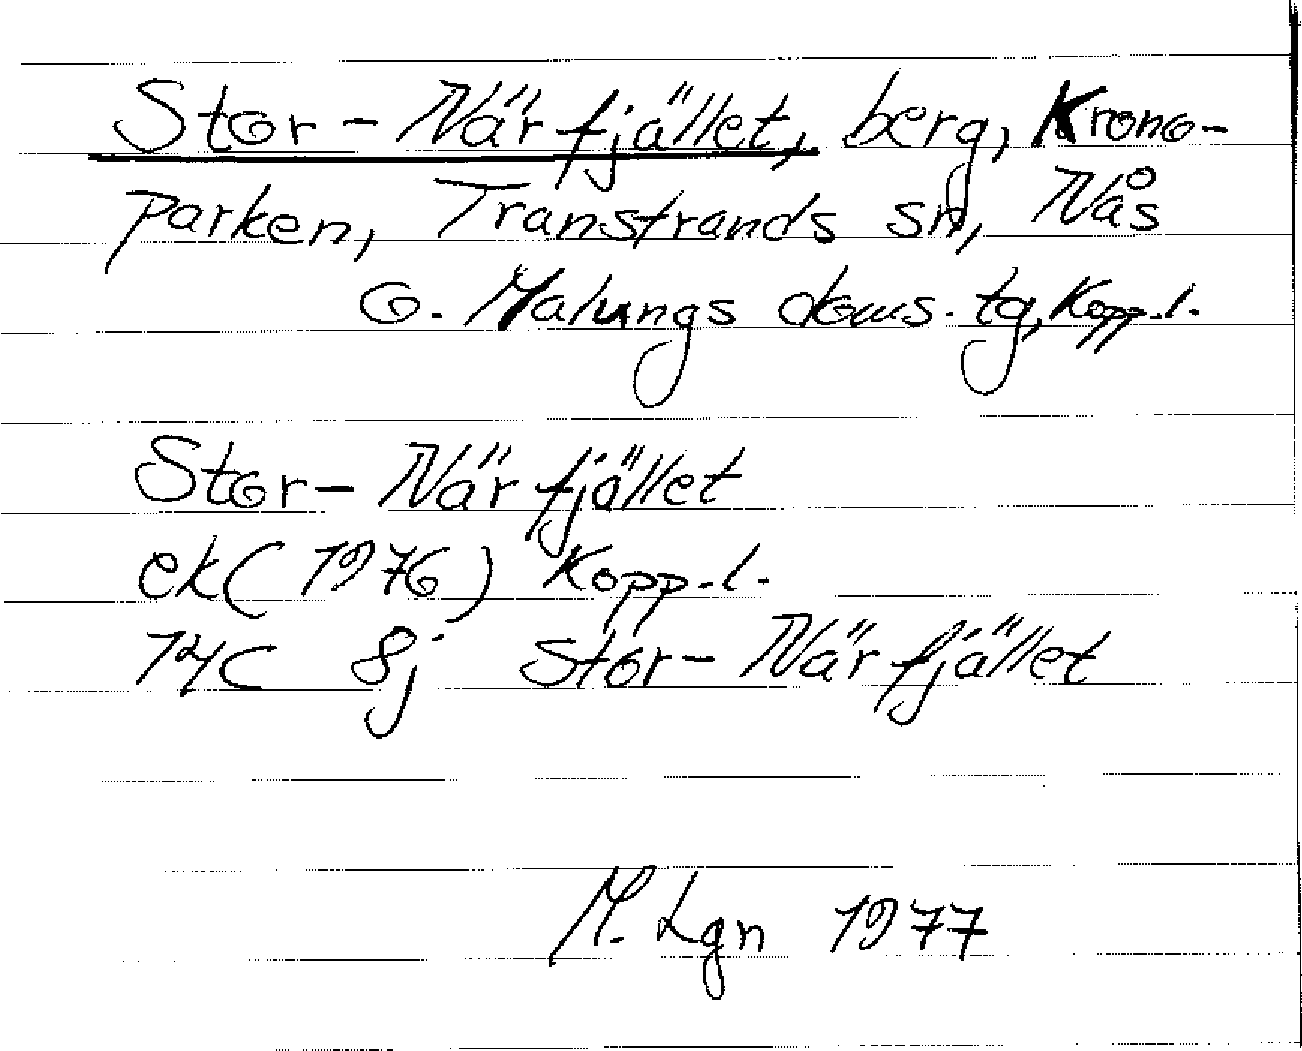 Stor-Närfjället, berg, Krono-
parken, Transtrands sn, Nås
o. Malungs doms. tg, Kopp.l.
Stor-Närfjället
ek (1976) Kopp.l.
14C 8j Stor-Närfjället
M. Lgn 1977